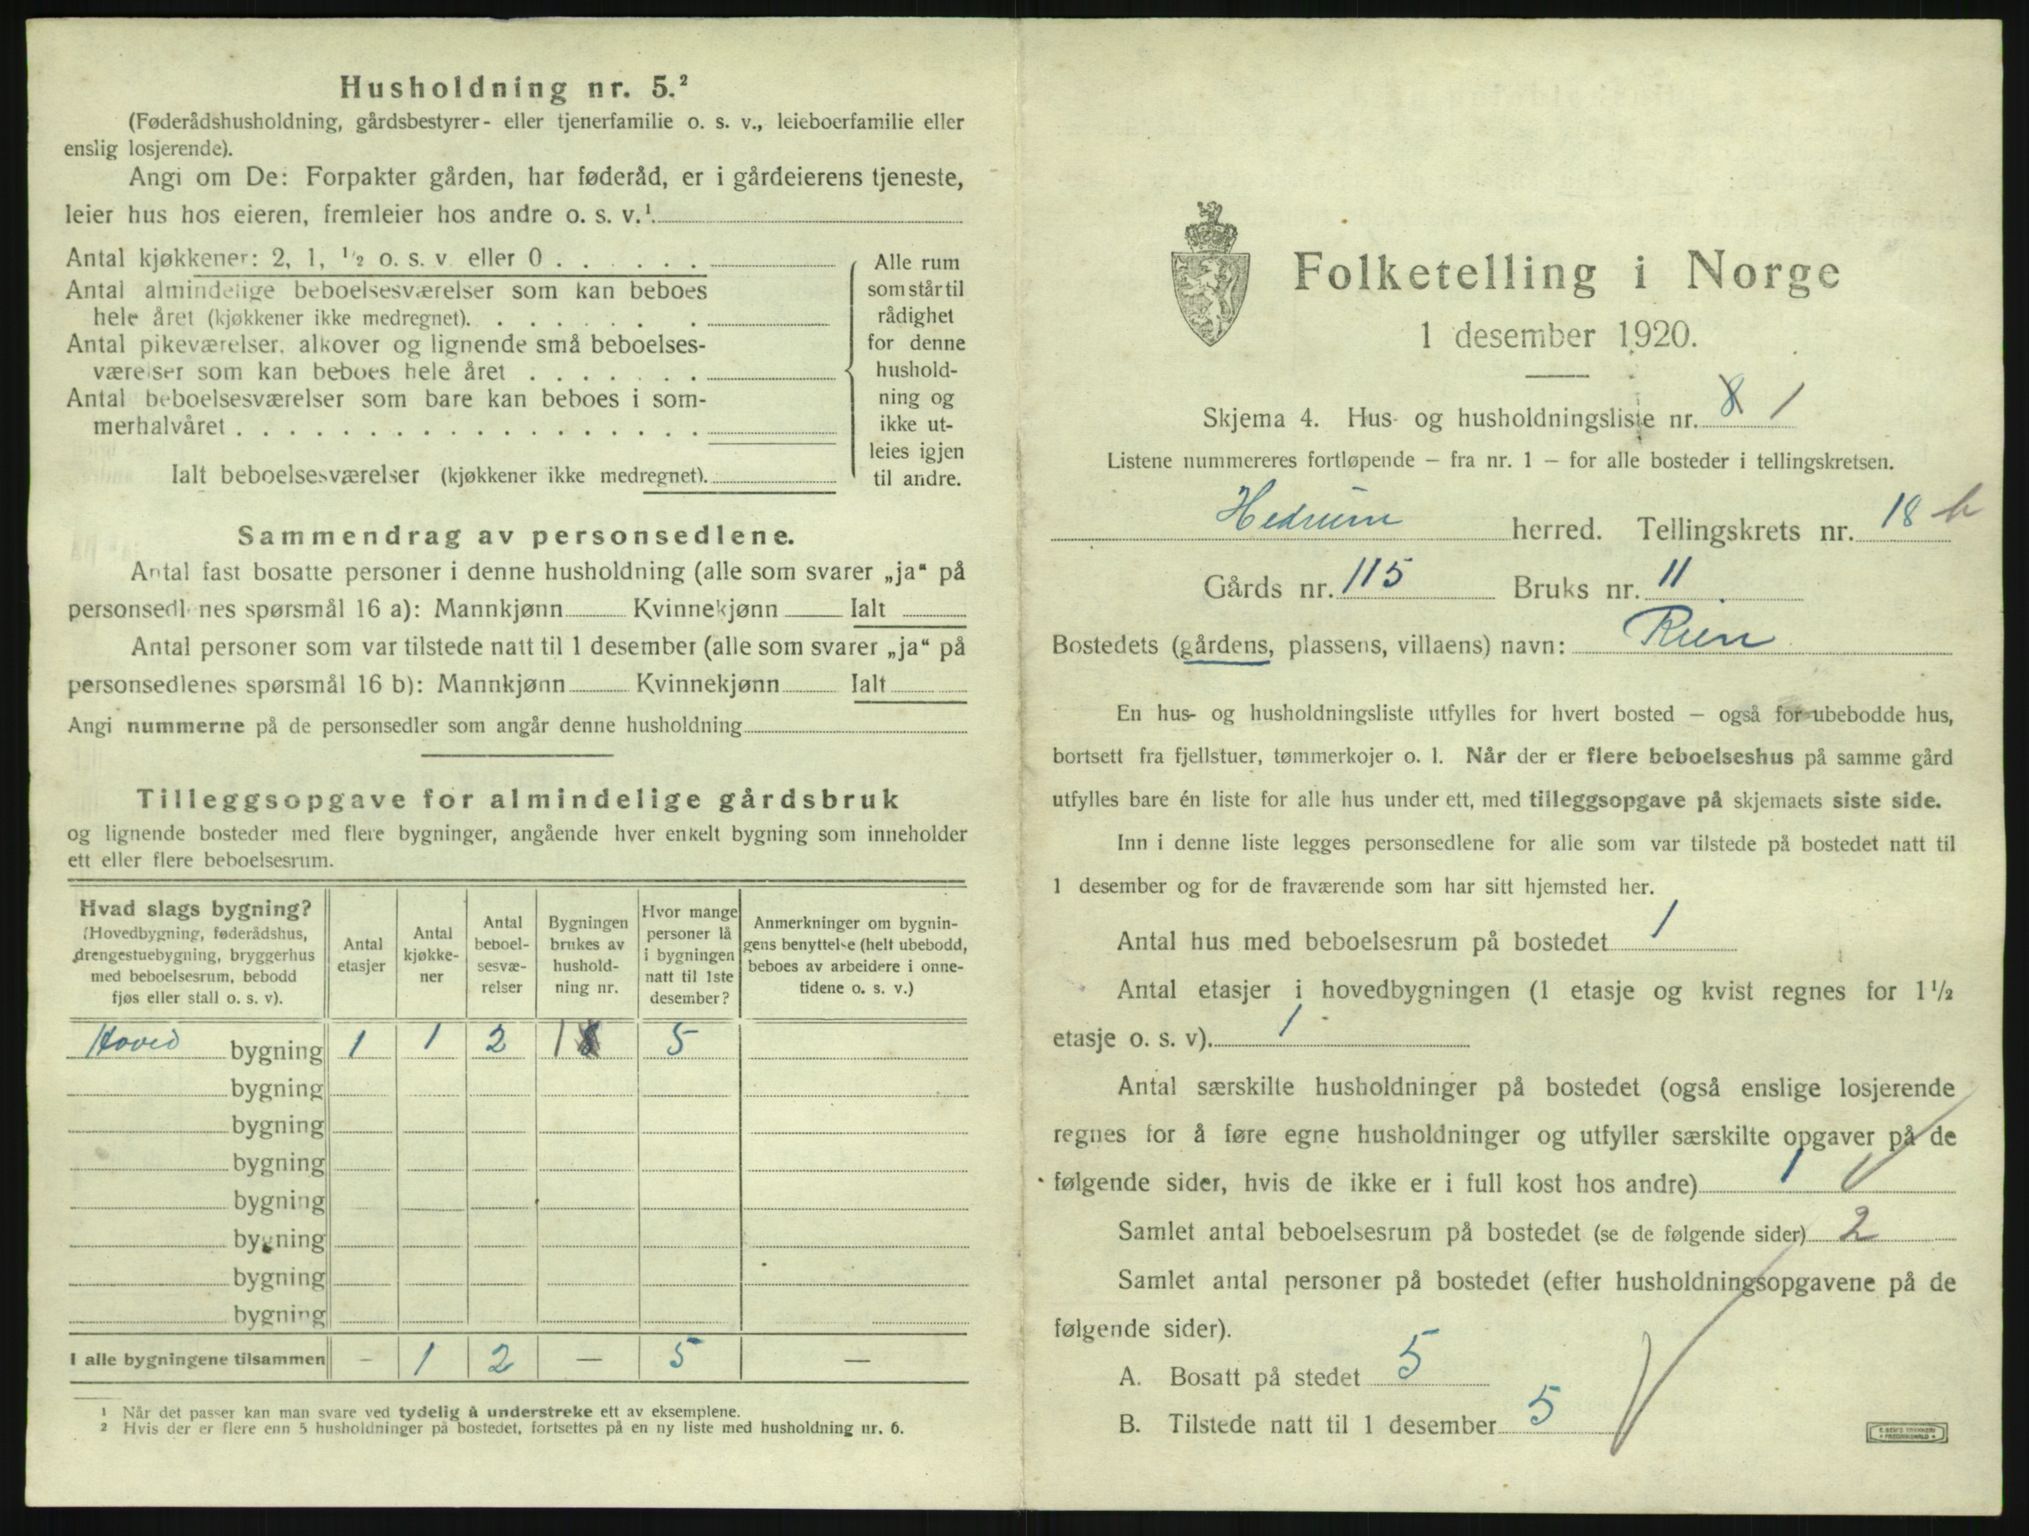 Husholdning nr. 5.²
(Føderådshusholdning, gårdsbestyrer- eller tjenerfamilie o. s. v., leieboerfamilie eller
enslig losjerende).
Angi om De: Forpakter gården, har føderåd, er i gårdeierens tjeneste,
leier hus hos eieren, fremleier hos andre o. s. v.¹
Antal kjøkkener: 2, 1, ¹/₂ o. s. v. eller 0 . . . . . .
Antal almindelige beboelsesværelser som kan beboes
hele året (kjøkkener ikke medregnet). . . . . . . .
Antal pikeværelser, alkover og lignende små beboelses-
værelser som kan beboes hele året . . . . . . .
Antal beboelsesværelser som bare kan beboes i som-
merhalvåret . . . . . . . . . . . . . . . . . .
Ialt beboelsesværelser (kjøkkener ikke medregnet).
Alle rum
som står til
rådighet
for denne
hushold-
ning og
ikke ut-
leies igjen
til andre.
Sammendrag av personsedlene.
Antal fast bosatte personer i denne husholdning (alle som svarer „ja“ på
personsedlenes spørsmål 16 a): Mannkjønn Kvinnekjønn Ialt
Antal personer som var tilstede natt til 1 desember (alle som svarer „ja“ på
personsedlenes spørsmål 16 b): Mannkjønn Kvinnekjønn Ialt
Angi nummerne på de personsedler som angår denne husholdning
Tilleggsopgave for almindelige gårdsbruk
og lignende bosteder med flere bygninger, angående hver enkelt bygning som inneholder
ett eller flere beboelsesrum.
Hvad slags bygning?
(Hovedbygning, føderådshus,
drengestuebygning, bryggerhus
med beboelsesrum, bebodd
fjøs eller stall o. s. v).
Antal
etasjer
Antal
kjøkke-
ner
Antal
beboel-
sesvæ-
relser
Bygningen
brukes av
hushold-
ning nr.
Hvor mange
personer lå
i bygningen
natt til 1ste
desember?
Anmerkninger om bygnin-
gens benyttelse (helt ubebodd,
beboes av arbeidere i onne-
tidene o. s. v.)
Hoved bygning 1 1 2 1 8 5
bygning
bygning
bygning
bygning
bygning
bygning
bygning
I alle bygningene tilsammen – 1 2 — 5 —
¹ Når det passer kan man svare ved tydelig å understreke ett av eksemplene.
² Hvis der er flere enn 5 husholdninger på bostedet, fortsettes på en ny liste med husholdning nr. 6.
Folketelling i Norge
1 desember 1920.
Skjema 4. Hus- og husholdningsliste nr. 8 1
Listene nummereres fortløpende – fra nr. 1 – for alle bosteder i tellingskretsen.
Hedrum herred. Tellingskrets nr. 18 b
Gårds nr. 115 Bruks nr. 11
Bostedets (gårdens, plassens, villaens) navn:
En hus- og husholdningsliste utfylles for hvert bosted – også for ubebodde hus,
bortsett fra fjellstuer, tømmerkojer o. l. Når der er flere beboelseshus på samme gård
utfylles bare én liste for alle hus under ett, med tilleggsopgave på skjemaets siste side.
Inn i denne liste legges personsedlene for alle som var tilstede på bostedet natt til
1 desember og for de fraværende som har sitt hjemsted her.
Antal hus med beboelsesrum på bostedet 1
Antal etasjer i hovedbygningen (1 etasje og kvist regnes for 1¹/₂
etasje o. s. v). 1
Antal særskilte husholdninger på bostedet (også enslige losjerende
regnes for å føre egne husholdninger og utfyller særskilte opgaver på de
følgende sider, hvis de ikke er i full kost hos andre) 1
Samlet antal beboelsesrum på bostedet (se de følgende sider) 2
Samlet antal personer på bostedet (efter husholdningsopgavene på de
følgende sider).
A. Bosatt på stedet 5
B. Tilstede natt til 1 desember 5